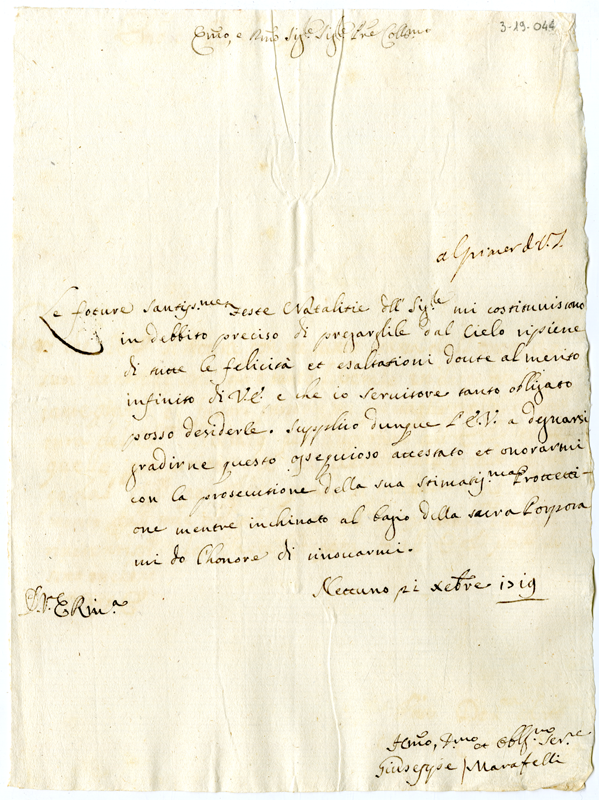 3-19-044
Em̃o, e Rm̃o Sig.r Sig.r P̃re Coll.mo
Le foture Santiss.me Feste Natalitie dell Sig.re mi costituiscono
in debbito preciso di pregarglile dal Cielo ripiene
di tutte le felicità et esaltationi doute al merito
infinito di V.E. e che io seruitore tanto obligato
posso desiderle. Supplico dunque l'E.V. a degnarsi
gradirne questo osseguioso attestato et onorarmi
con la prosecutione della sua stimatiss.ma Prottetti-
one mentre inchinato al bagio della sacra Porpora
mi do l'honore di rinouarmi.
Nettuno pi xcbre 1719
D.V.E Rm.a
Hum̃o, D.mo et Obblg.mo Ser.e
Giuseppe Marafelli